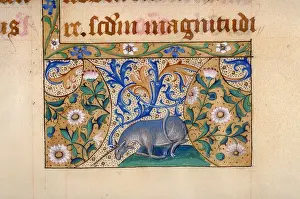 us re. scdm magnitudi